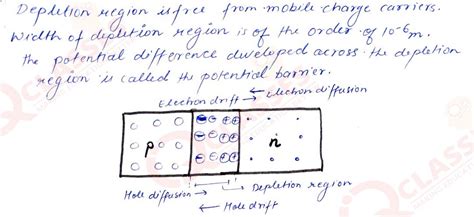 Depletion region is free from mobile charge carriers.
Width of depletion region is of the order of 10⁻⁶m.
the potential difference developed across the depletion
region is called the potential barrier.
Electron drift → ← Electron diffusion
p n
Hole diffusion → Depletion region
← Hole drift
CLASS